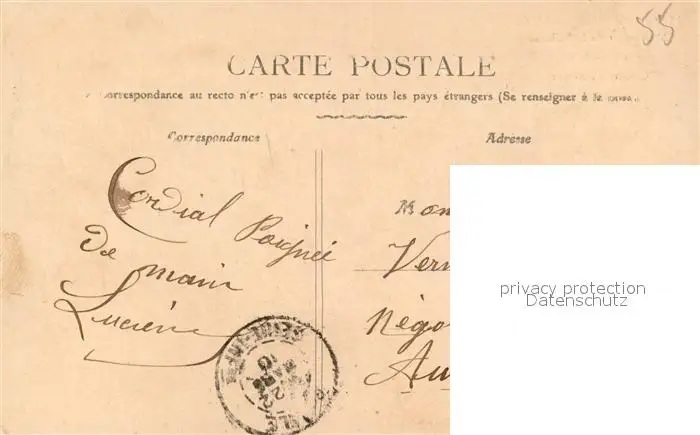 55
CARTE POSTALE
correspondance au recto n'est pas acceptée par tous les pays étrangers (Se renseigner à la
Correspondance
Adresse
Cordial Poignée
De main
Lucien
Mon
Vern
Négo
Au
privacy protection
Datenschutz
22
MARS